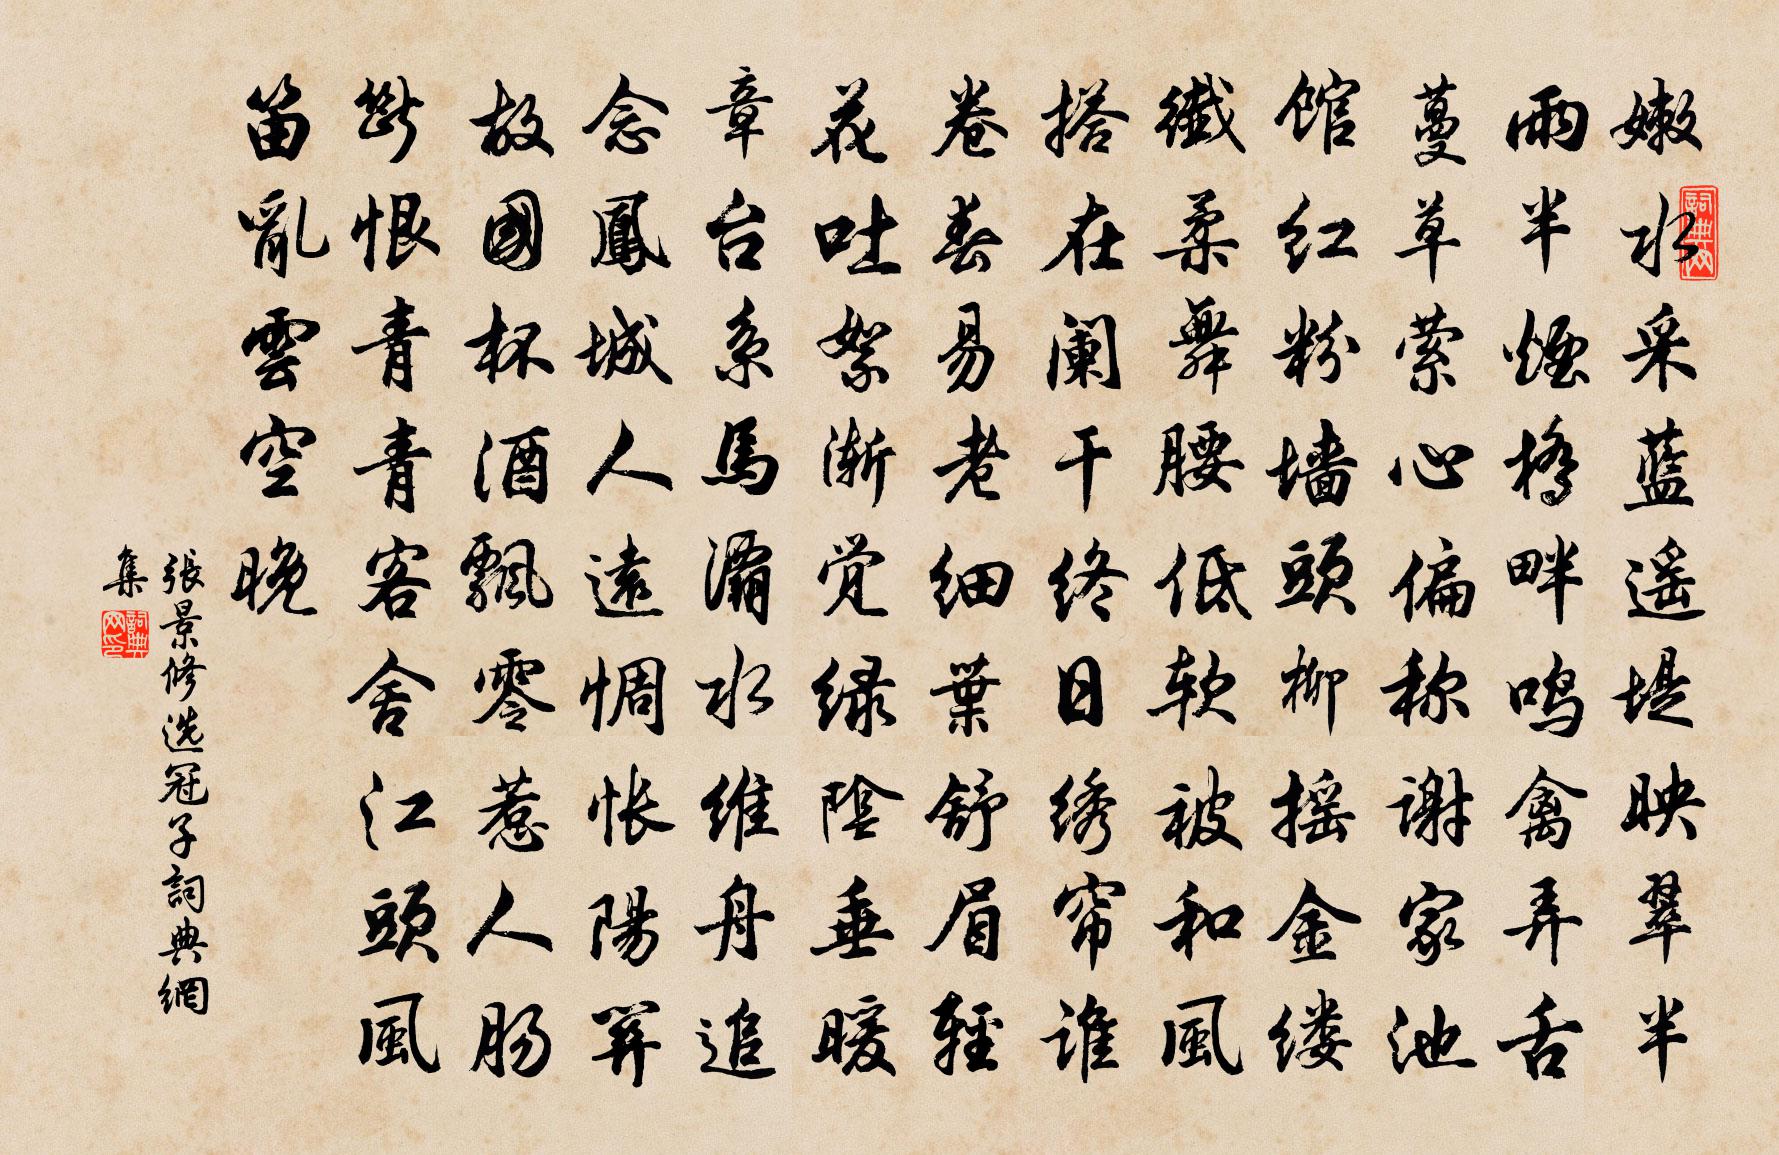 嫩水采蓝遥堤映翠半
雨半煙橋畔鸣禽弄舌
蔓草萦心偏称谢家池
馆红粉墙頭柳摇金缕
纖柔舞腰低软被和風
搭在阑干终日绣帘谁
卷春易老细葉舒眉轻
花吐絮渐觉绿陰垂暖
章台系馬灞水维舟追
念鳳城人遠惆怅陽關
故國杯酒飄零惹人肠
斷恨青青客舍江頭風
笛亂雲空晚
張景修选冠子詞典網
集
詞典网
詞典网印